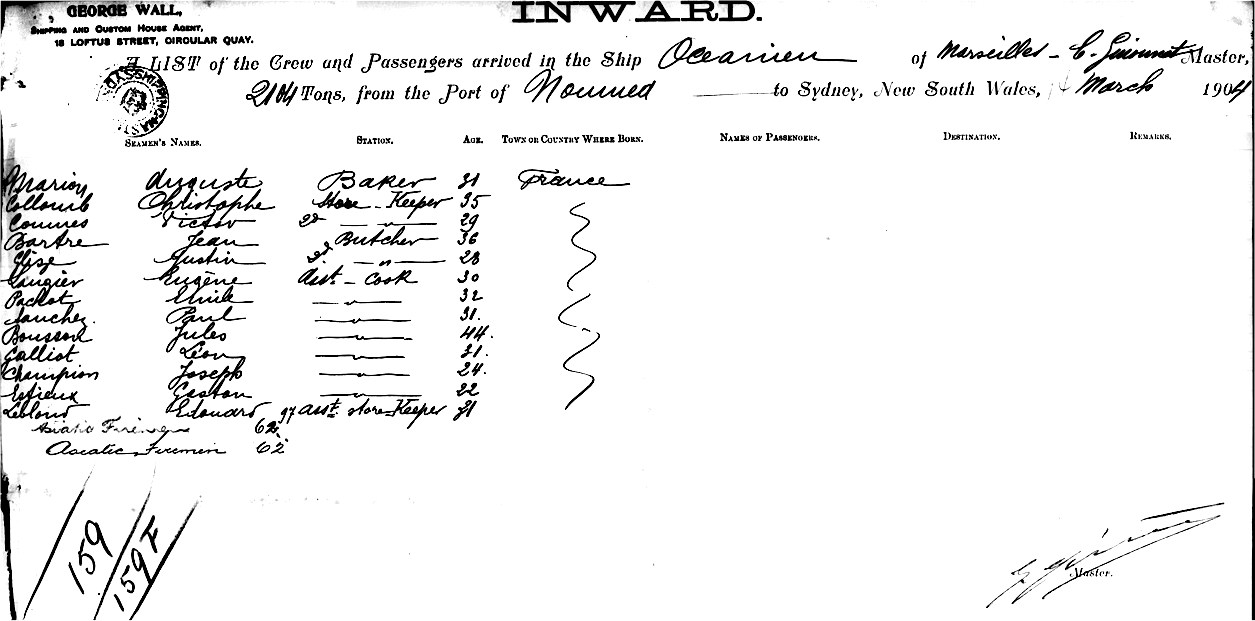 GEORGE WALL,
SHIPPING AND CUSTOM HOUSE AGENT,
18 LOFTUS STREET, CIRCULAR QUAY.
INWARD.
A LIST of the Crew and Passengers arrived in the Ship Oceanien of Marseilles - C. Master,
2104 Tons, from the Port of Noumea to Sydney, New South Wales, March 1904
SEAMEN'S NAMES. STATION. AGE. TOWN OR COUNTRY WHERE BORN. NAMES OF PASSENGERS. DESTINATION. REMARKS.
Marion Auguste Baker 31 France
Collomb Christophe Store-Keeper 35
Commes Victor 2d — " — 29
Bartre Jean Butcher 36
Justin 2d — " — 28
Laugier Eugène Asst - Cook 30
Pachot Emile — " — 32
Sanchez. Paul — " — 31.
Bousson Jules — " — 44.
Galliot Léon — " — 21.
Champion Joseph — " — 24.
Estieux Gaston — " — 22
Leblond Edouard 97 asst. store-Keeper 21
Asiatic Firemen 62
Asiatic Firemen 62
159
159 F
Master.